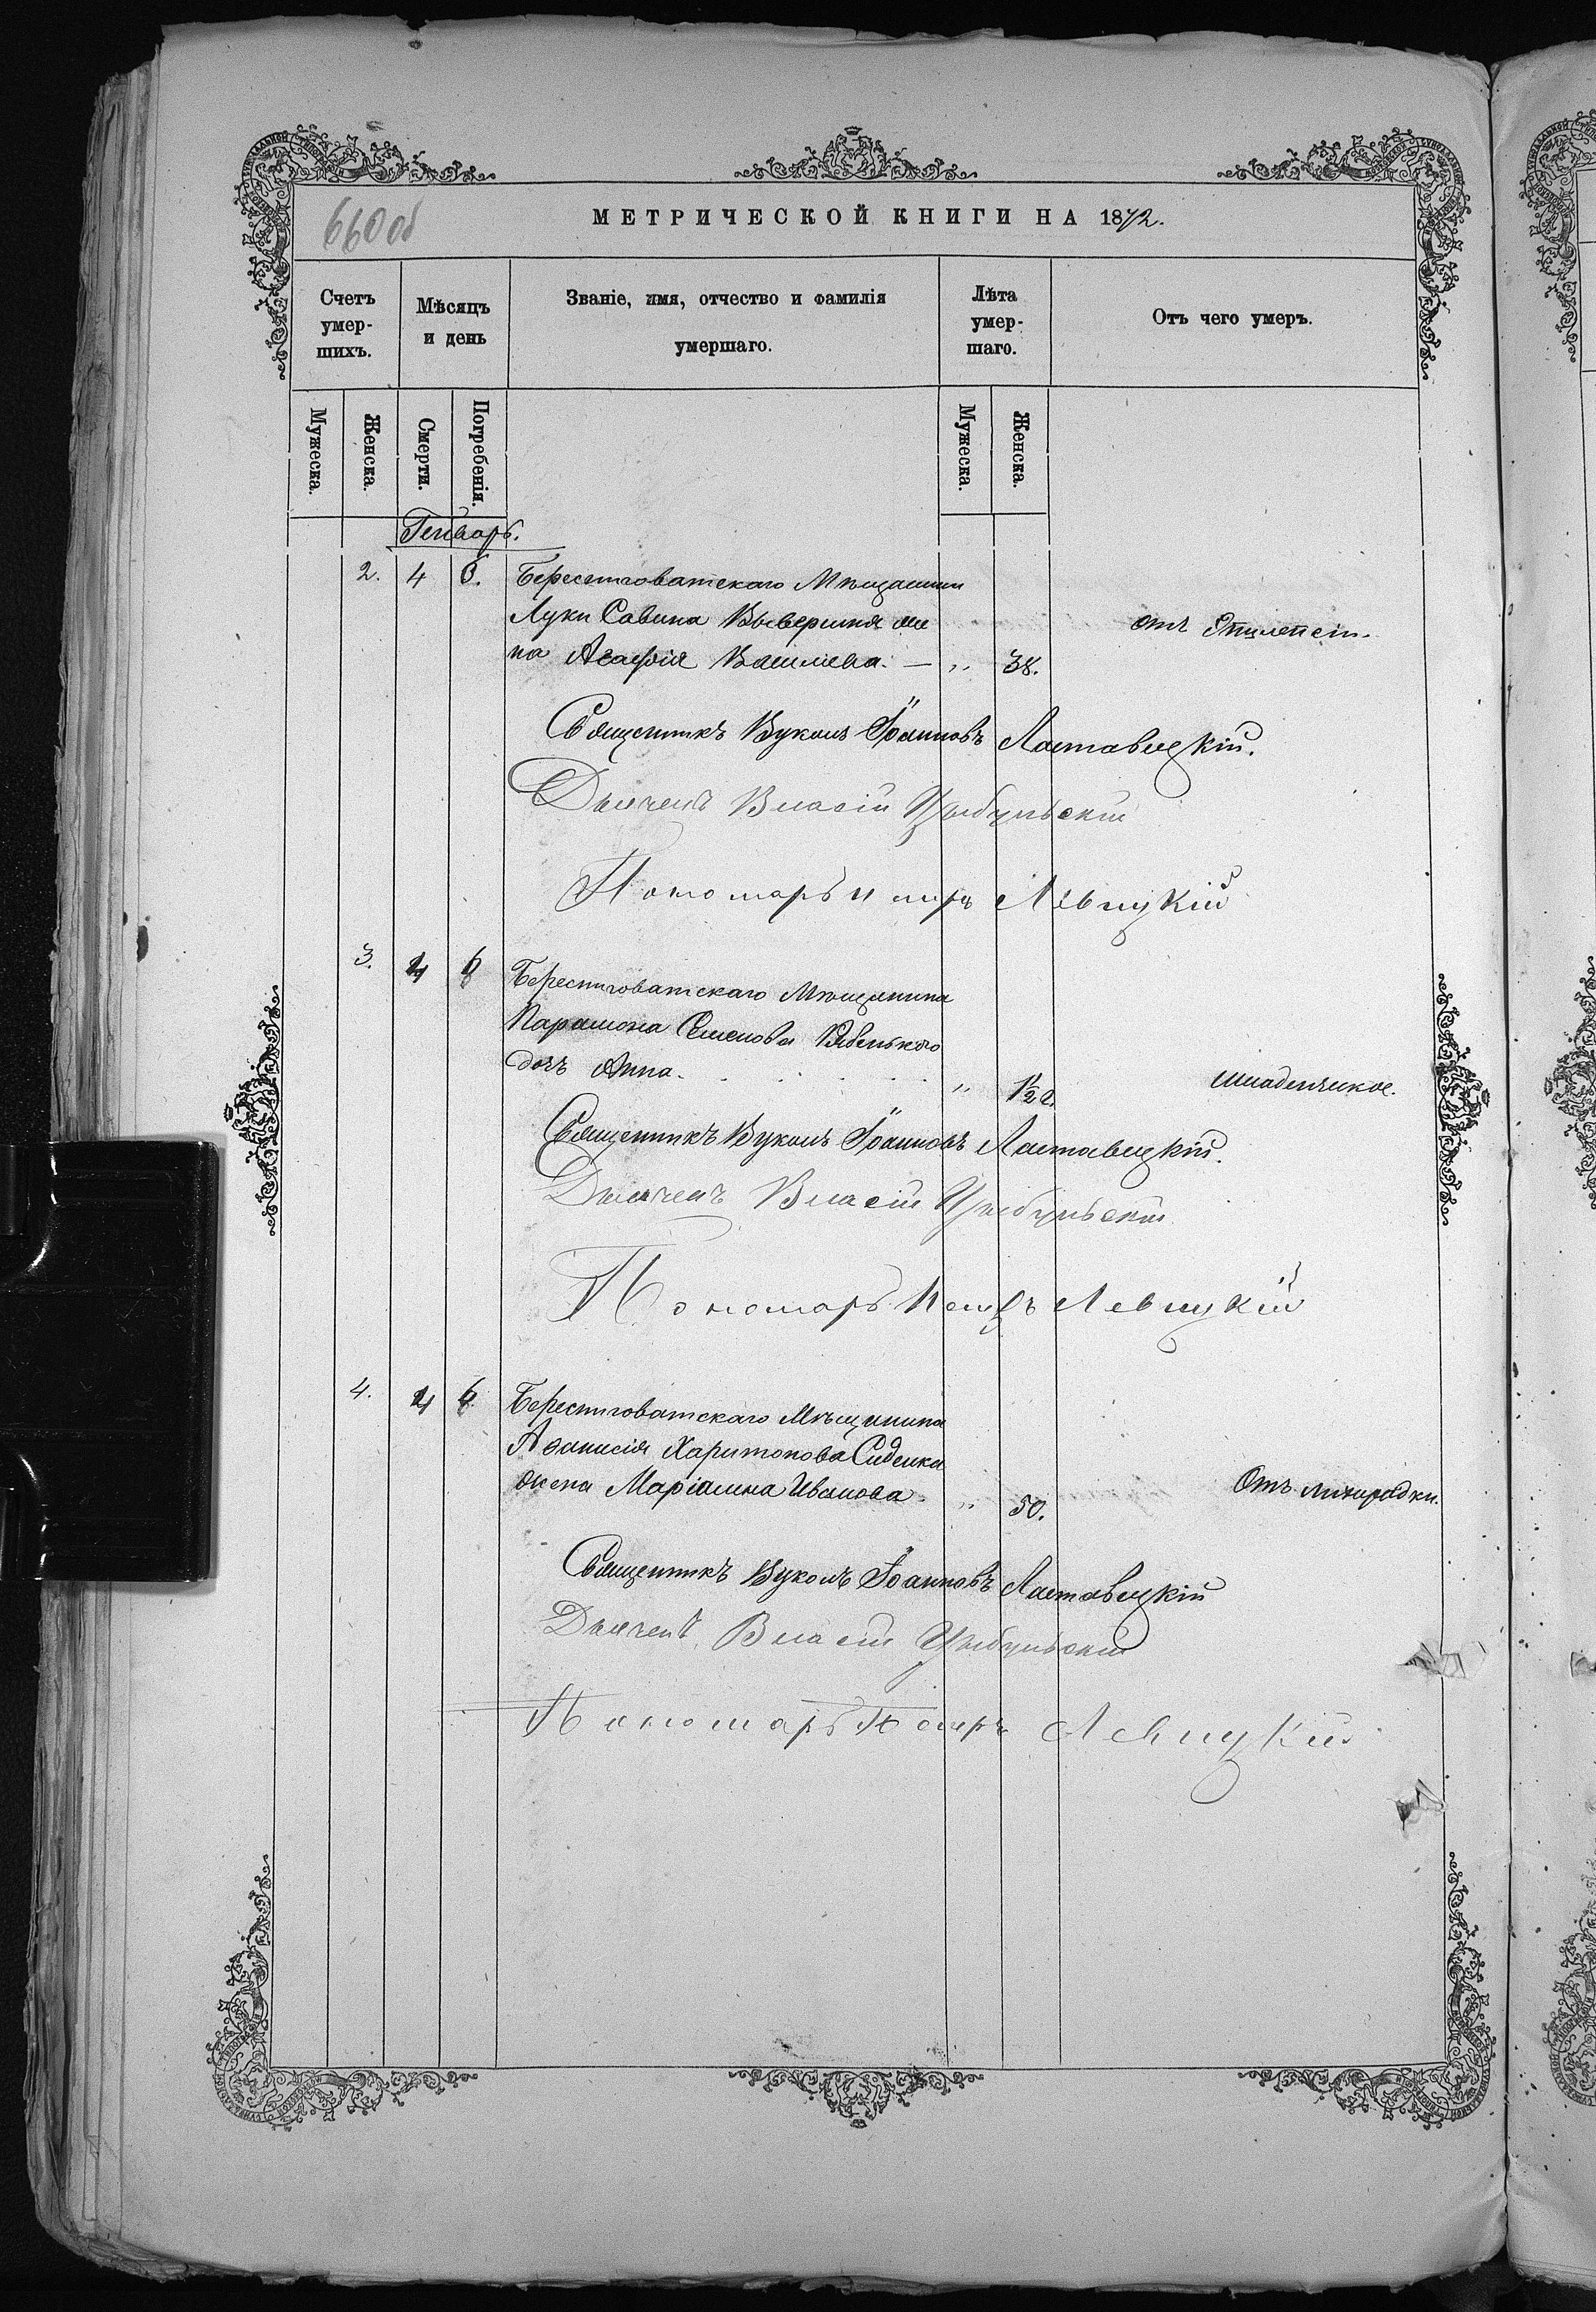 660 об
МЕТРИЧЕСКОЙ КНИГИ НА 1872.
Счетъ умер-шихъ.
Мѣсяцъ и день
Званіе, имя, отчество и фамилія умершаго.
Лѣта умер-шаго.
Отъ чего умеръ.
Мужеска.
Женска.
Смерти.
Погребенія.
Мужеска.
Женска.
Генварь.
2. 4 6. Берестоватскаго Мѣщанина
Луки Савина же
на Агафія — „ 38. отъ Епилепсіи.
Священникъ Вуколъ Іоанновъ Ластавецкій.
Дьячекъ Власій Цыбульскій
Пономарь Петръ Левицкій
3. 4 6 Берестоватскаго Мѣщанина
Парамона Семенова
дочь Анна. „ 1/2 г. младенческое.
Священникъ Вуколъ Іоанновъ Ластавецкій.
Дьячекъ Власій Цыбульскій
Пономарь Петръ Левицкій
4. 4 6. Берестоватскаго Мѣщанина
Афанасія Харитонова Сиденка
жена Маріамна Иванова „ 50. Отъ лихорадки.
Священникъ Вуколъ Іоанновъ Ластавецкій
Дьячекъ Власій Цыбульскій
Пономарь Петръ Левицкій